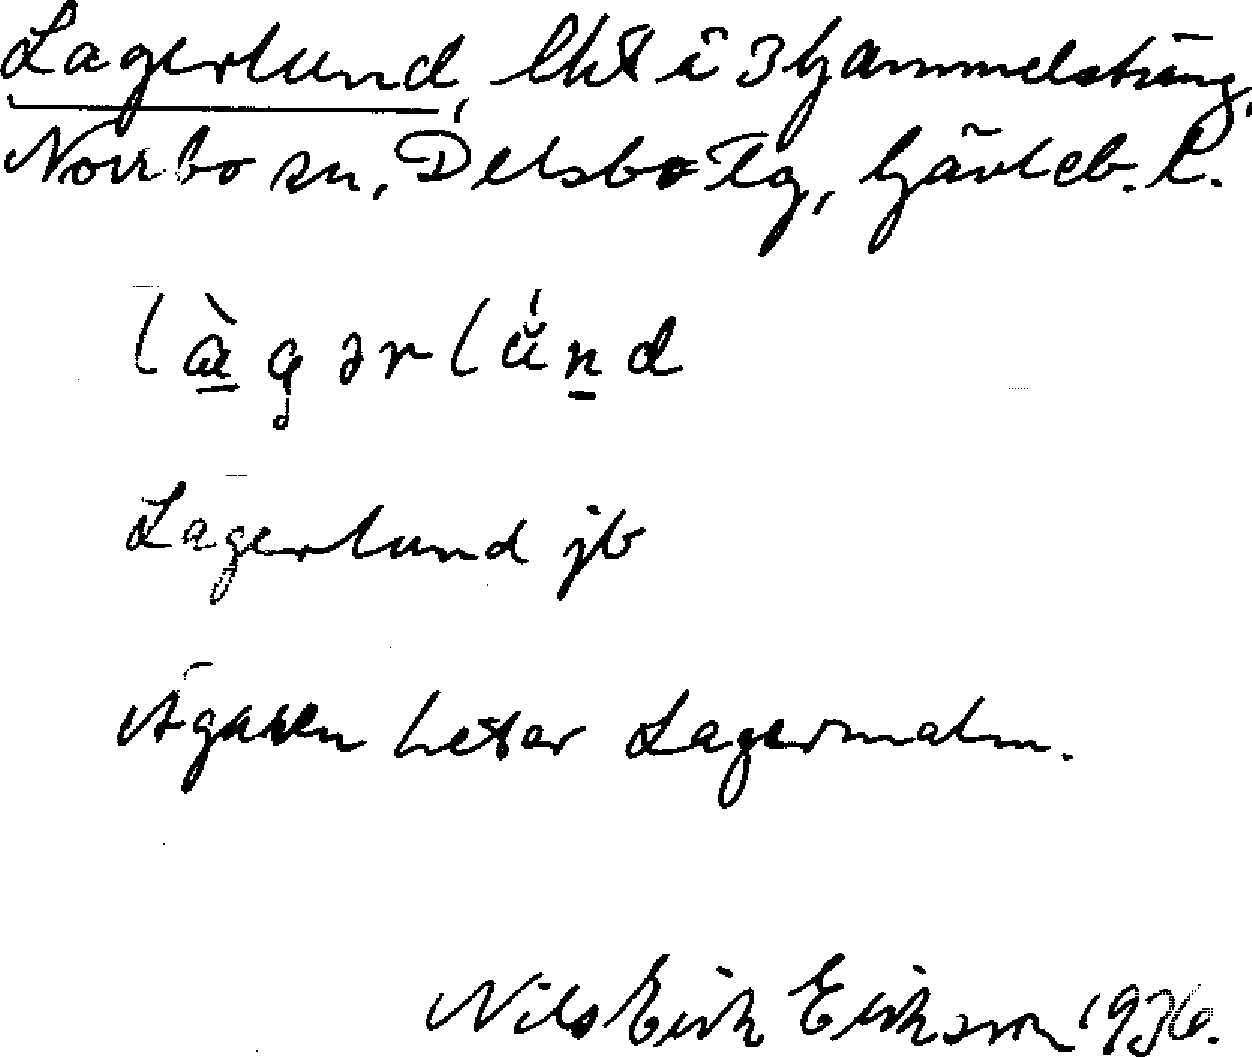 Lagerlund, lht i 3 Gammelsträng,
Norrbo sn, Delsbo tg, Gävleb. l.
làgərlúnd
Lagerlund jb
Ägaren heter Lagermalm.
Nils Erik Erikson 1936.